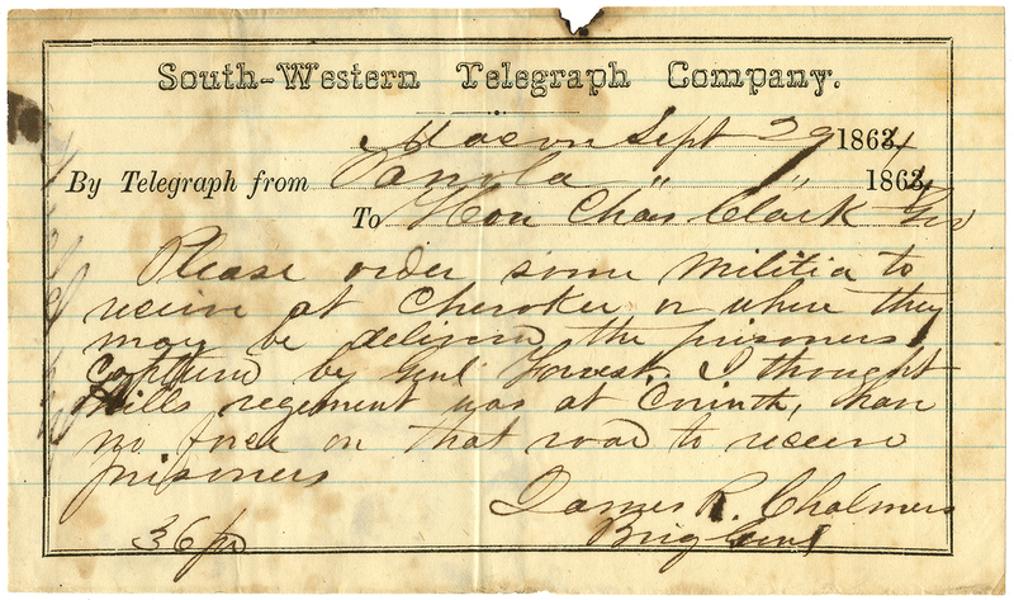 South-Western Telegraph Company.
Macon Sept 29 1864
By Telegraph from Panola " " 1864
To Hon Chas Clark Gov
Please order some militia to
receive at Cherokee or where they
may be delivered the prisoners
captured by Genl Forrest. I thought
Mills regement was at Corinth, have
no force on that road to receive
prisoners
James R. Chalmers
36 pd Brig Genl